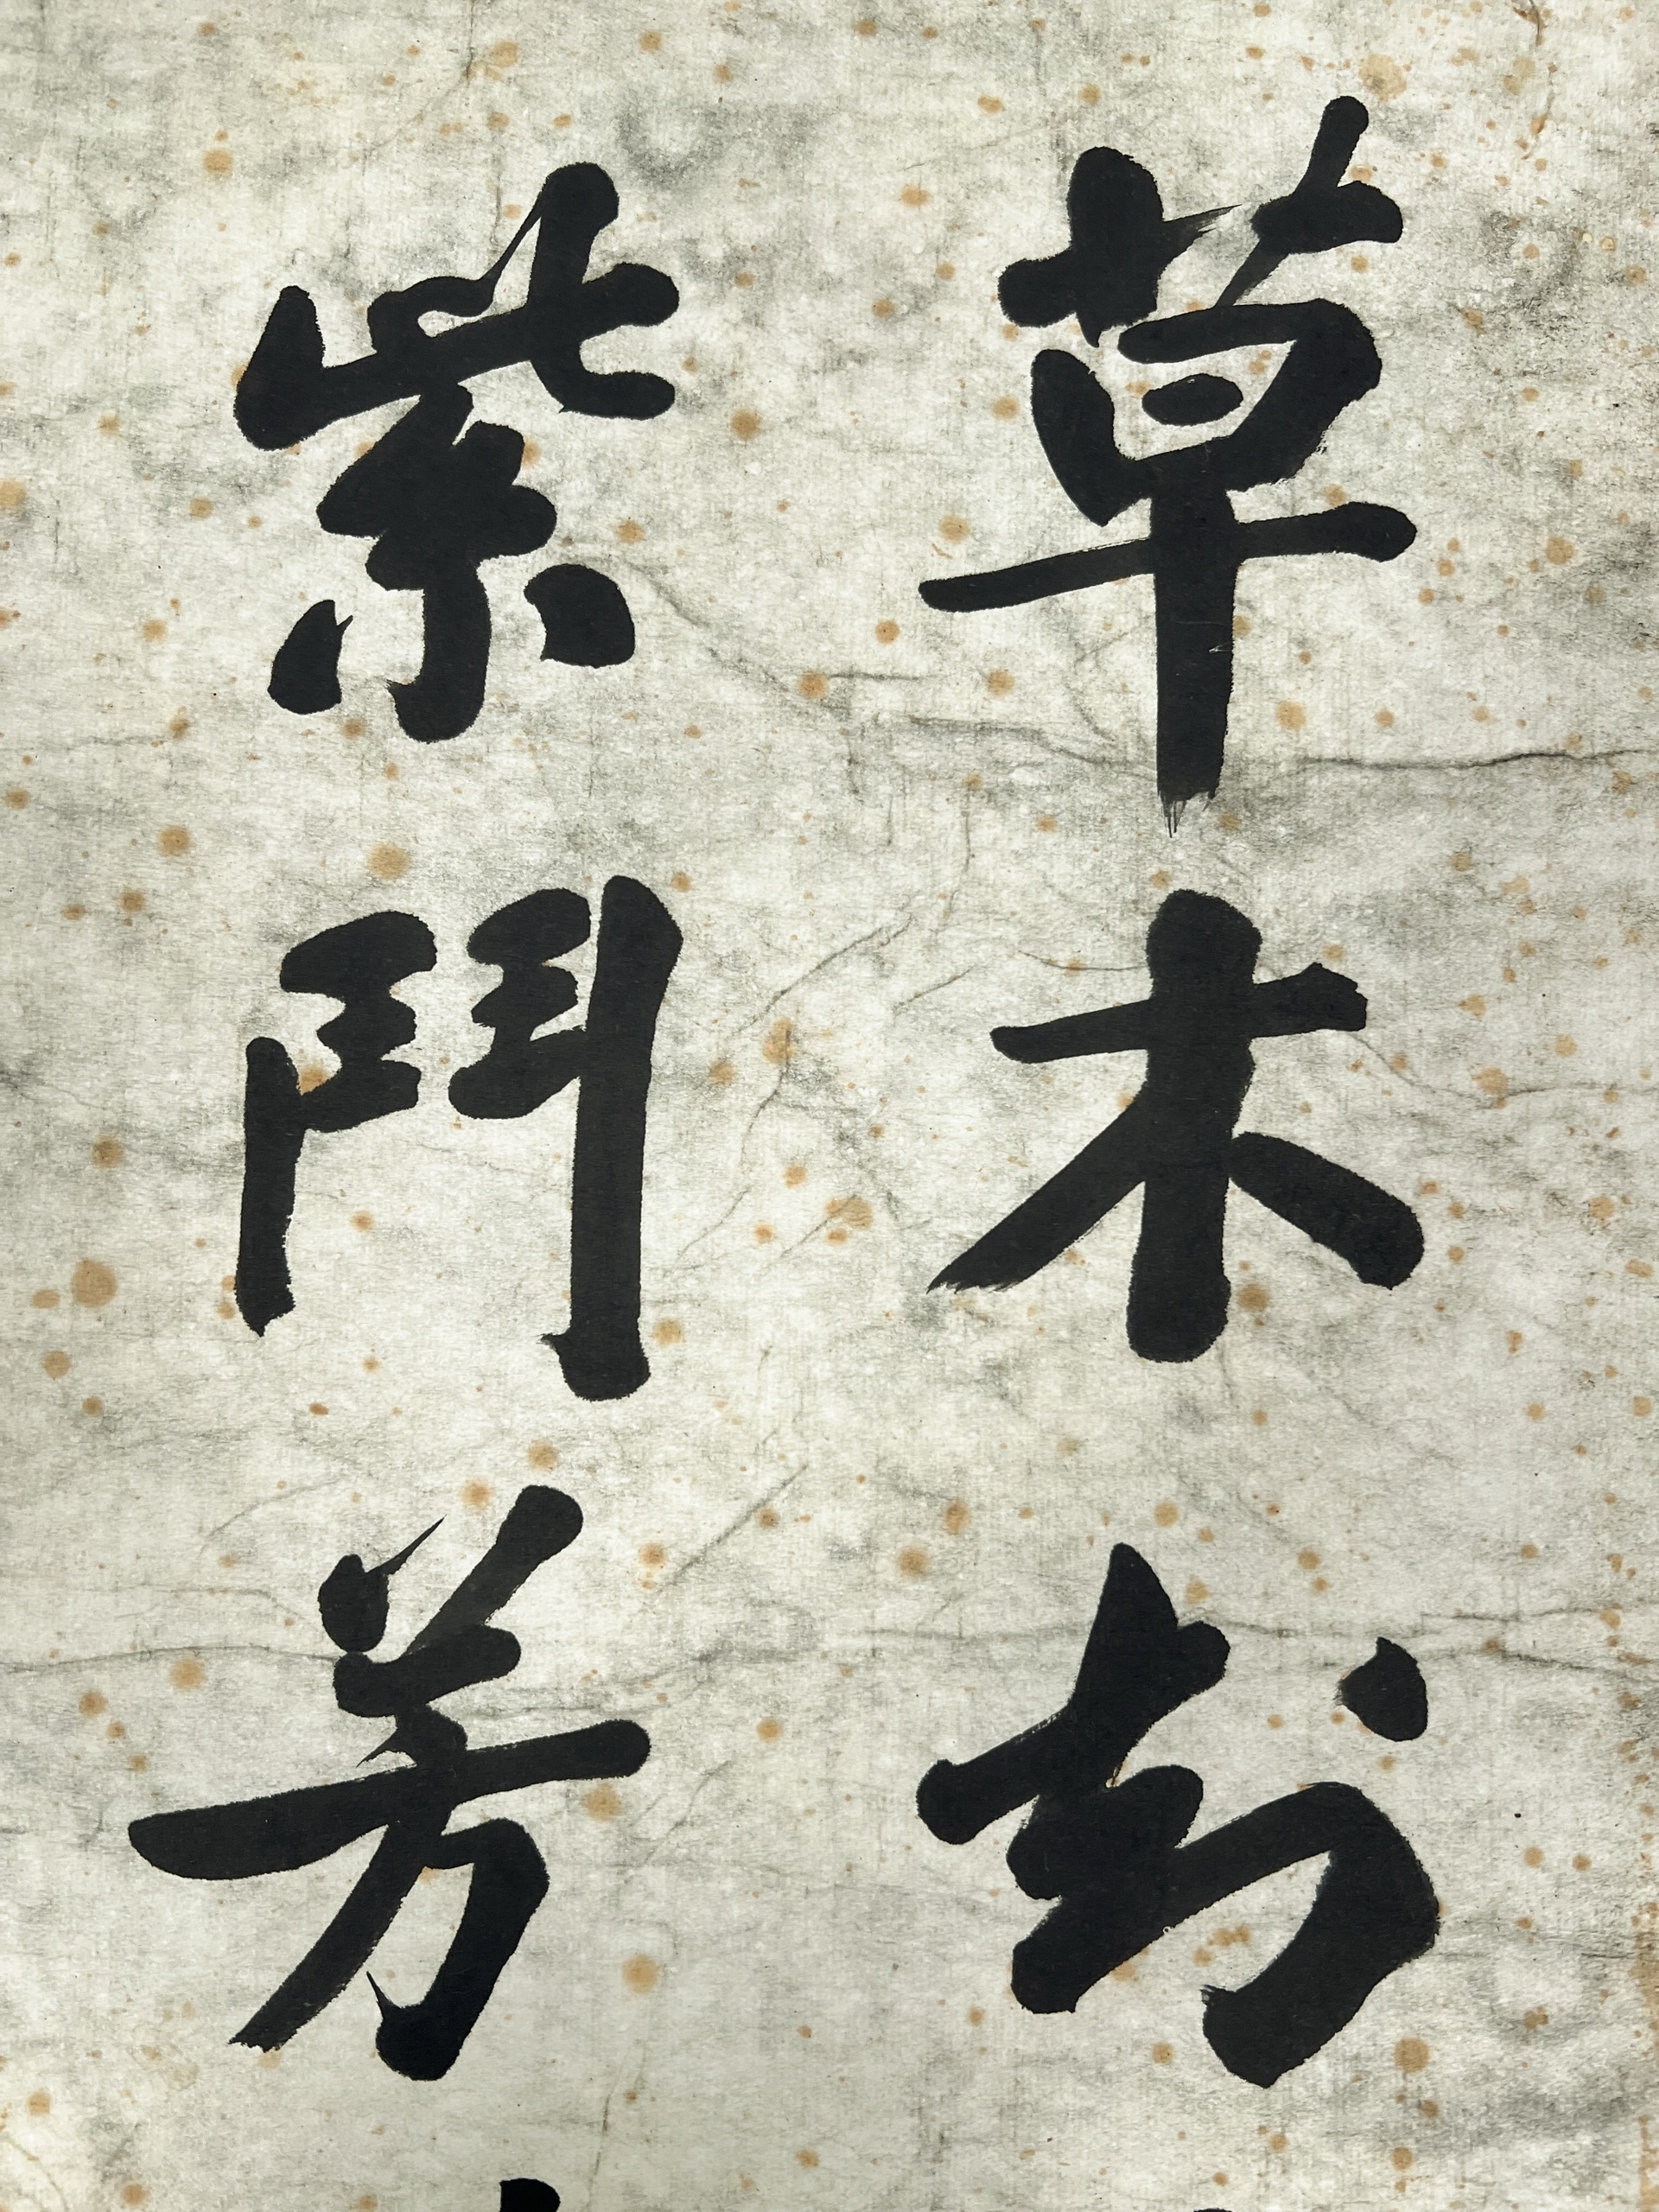 草木知
紫鬥芳